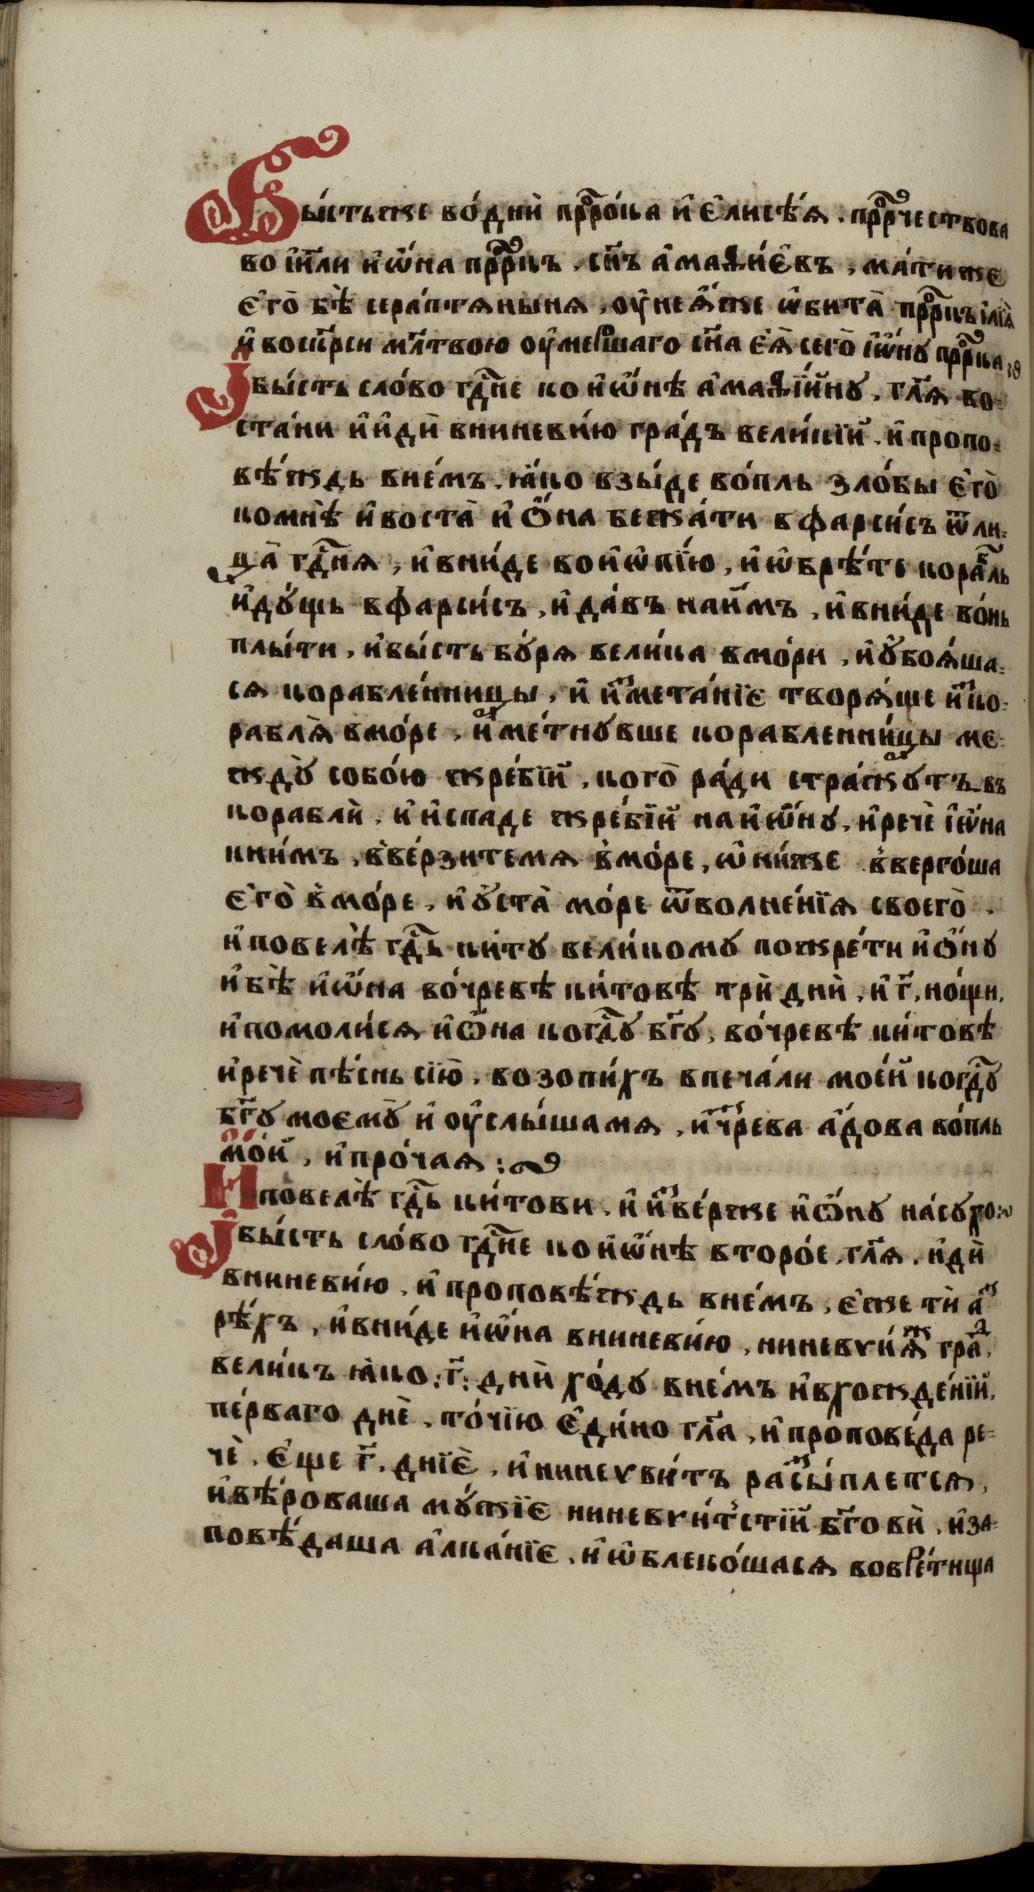 Бы́стьже во́дни прⷪ҇ро́ка и҆ є҆лисѣ́я . прⷪ҇рчествова
во і҆и҃ли и҆ѡ҆́на прⷪ҇ркъ . сн҃ъ а҆маѳи́евъ , ма́тиже
є҆го̀ бѣ̀ сера́птяныня , оу҆нея́же ѡ҆бита̀ прⷪ҇ркъ ілїѧ̀
и҆ воскр҃си мл҃твою оу҆ме́ршаго сн҃а є҆я̀ сего̀ і҆ѡ҆́ну прⷪ҇рка
И҆бы́сть сло́во гдⷭ҇не ко и҆ѡ҆́нѣ а҆маѳі́ину , гл҃я во-
ста́ни и҆ и҆дѝ вниневи́ю гра́дъ вели́кїй . и҆ пропо-
вѣ́ждь вне́мъ . ꙗ҆́ко взы́де во́пль зло́бы є҆го̀
комнѣ̀ и҆ воста̀ и҆ѡ҆́на бежа́ти вфарси́съ ѿ ли-
ца̀ гдⷭ҇ня , и҆ вни́де во и҆ѡ҆пїю , и҆ ѡ҆брѣ́те кора́бль
и҆ду́щь вфарси́съ , и҆ да́въ наи́мъ , и҆ вни́де во́нь
плы́ти , и҆ бы́сть бу́ря вели́ка вмо́ри , и҆ оу҆боя́ша-
ся корабле́нницы , и҆ и҆зⸯмета́нїе творя́ще и҆зⸯко-
рабля̀ вмо́ре , и҆ ме́тнувше кораблени́цы ме-
жду̀ собо́ю жре́бїй , кого̀ ра́ди стра́жутъ въ
кораблѝ . и҆ и҆спаде жре́бїй на и҆ѡ҆́ну , и҆ речѐ і҆ѡ҆́на
кни́мъ , вве́рзитемя вмо́ре , ѡ҆ни́же вверго́ша
є҆го̀ вмо́ре , и҆ оу҆ста̀ мо́ре ѿ волне́нїя своего̀ .
и҆ повелѣ̀ гдⷭ҇ь ки́ту вели́кому пожре́ти и҆ѡ҆́ну
и҆ бѣ̀ и҆ѡ҆́на во́чревѣ ки́товѣ трѝ днѝ , и҆ г҃ , но́щи ,
и҆ помоли́ся и҆ѡ҆́на когдⷭ҇у бг҃у , во́чревѣ ки́товѣ
и҆ речѐ пѣ́снь сїю̀ . возопи́хъ впеча́ли мое́й когдⷭ҇у
бг҃у моему̀ и҆ оу҆слы́шамя , и҆зⸯчре́ва а҆́дова во́пль
мо́й , и҆ про́чая :
И повелѣ̀ гдⷭ҇ь ки́тови . и҆ и҆зⸯве́рже и҆ѡ҆́ну на́сухо :
И҆бы́сть сло́во гдⷭ҇не ко и҆ѡ҆́нѣ второ́е , гл҃я . и҆дѝ
вниневи́ю , и҆ проповѣ́ждь вне́мъ , є҆́же тѝ азⸯ
рѣ́хъ , и҆ вни́де и҆ѡ҆́на вниневи́ю , ниневги́ꙗже гра́д
вели́къ ꙗ҆́ко : г҃ : днѝ хо́ду вне́мъ и҆ вхожде́нїй ,
пе́рваго днѐ , то́чїю є҆ди́но гл҃а , и҆ пропове́да ре-
чѐ . є҆ще г҃ . днїѐ , и҆ ниневги́тъ разⸯсы́плется ,
и҆ вѣ́роваша му́жїе ниневги́тстїй бг҃овѝ , и҆ за-
повѣ́даша а҆лка́нїе , и҆ ѡ҆блеко́шася вовре́тища